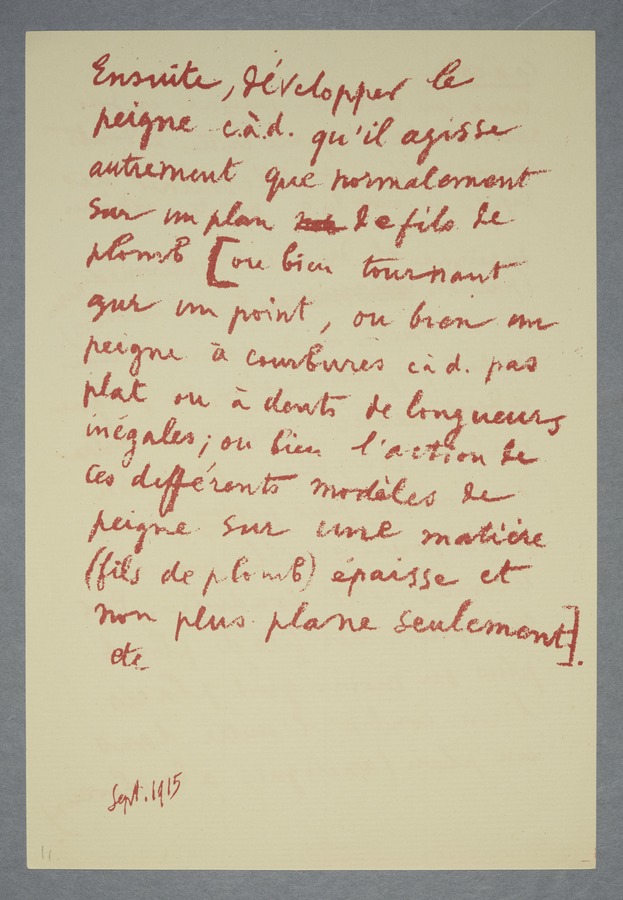 Ensuite, développer le
peigne c.à.d. qu'il agisse
autrement que normalement
sur un plan de fils de
plomb [ou bien tournant
sur un point, ou bien un
peigne à courbures cà d. pas
plat ou à dents de longueurs
inégales; ou bien l'action de
ces différents modèles de
peigne sur une matière
(fils de plomb) épaisse et
non plus plane seulement].
etc
Sept. 1915